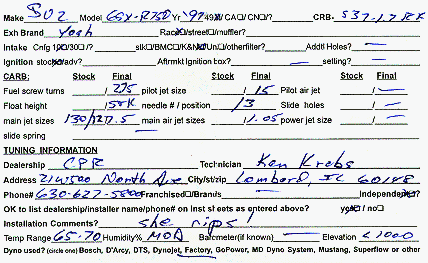 Make SUZ Model GSX-R750 Yr 97 49 CA CN ? CRB- 537-1.7 RK
Exh Brand Yosh Race/street /muffler?
Intake Cnfg 1 /30 /? slk /BMC /K&N Un /otherfilter? Addtl Holes? —
Ignition stock /navley? Aftrmkt Ignition box? setting? —
CARB: Stock Final Stock Final Stock Final
Fuel screw turns / 2.75 pilot jet size / 15 Pilot air jet / —
Float height / Stk needle # / position / 3 Slide holes / —
main jet sizes 130/127.5 main air jet sizes / 1.05 power jet size / —
slide spring
TUNING INFORMATION
Dealership CPR Technician Ken Krebs
Address 21W500 North Ave City/st/zip Lombard, IL 60148
Phone# 630-627-5800 Franchised /Brands Independent?
OK to list dealership/installer name/phone# on inst sheets as entered above? yes / no
Installation Comments? she rips!
Temp Range 65-70 Humidity% MOD Barometer(if known) — Elevation <1000
Dyno used? (circle one) Bosch, D'Arcy, DTS, Dynojet, Factory, GoPower, MD Dyno System, Mustang, Superflow or other